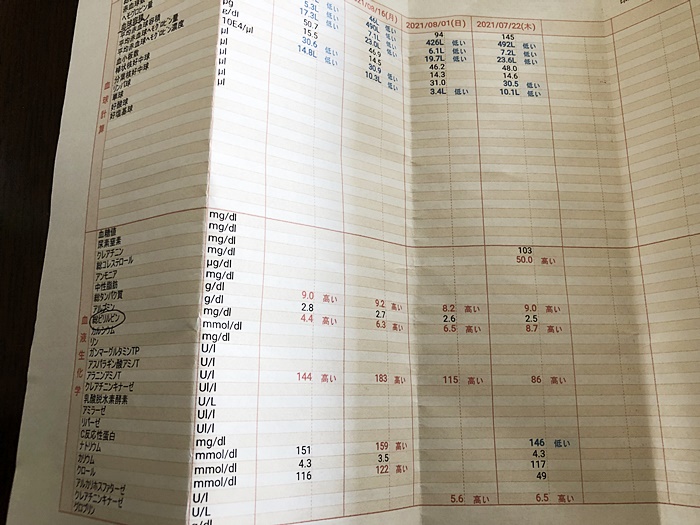 2021/08/16(月) 2021/08/01(日) 2021/07/22(木)
µg 5.3L 低い 46L 94 145
g/dl 17.3L 低い 490L 低い 426L 低い 492L 低い
10E4/µl 50.7 7.1L 低い 6.1L 低い 7.2L 低い
µl 15.5 23.0L 低い 19.7L 低い 23.6L 低い
µl 30.6 46.9 46.2 48.0
µl 14.8L 低い 14.5 14.3 14.6
µl 30.9 31.0 30.5
µl 10.3L 低い 3.4L 低い 10.1L 低い
血小板数
桿状核好中球
分葉核好中球
リンパ球
単球
好酸球
好塩基球
血球計算
血糖値 mg/dl
尿素窒素 mg/dl
クレアチニン mg/dl 103
総コレステロール mg/dl 50.0 高い
アンモニア µg/dl
中性脂肪 mg/dl
総タンパク質 g/dl 9.0 高い 9.2 高い 8.2 高い 9.0 高い
アルブミン g/dl 2.8 2.7 2.6 2.5
総ビリルビン mg/dl 4.4 高い 6.3 高い 6.5 高い 8.7 高い
カルシウム mmol/dl
リン mg/dl
ガンマーグルタミンTP U/l
アスパラギン酸アミノT U/l
アラニンアミノT U/l 144 高い 183 高い 115 高い 86 高い
クレアチニンキナーゼ U/l
乳酸脱水素酵素 U/L
アミラーゼ U/l
リパーゼ U/l
C反応性蛋白 mg/dl
ナトリウム mmol/dl 151 159 高い 146 低い
カリウム mmol/dl 4.3 3.5 4.3
クロール mmol/dl 116 122 高い 117
アルカリホスファターゼ U/l 49
クレアチニンキナーゼ U/L
グロブリン g/dl 5.6 高い 6.5 高い
血液生化学